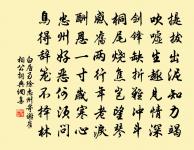 提拔出泥知力竭
吹噓生翅見情深
劍鋒缺折難衝斗
桐尾燒焦豈望琴
感舊兩行年老淚
酬恩一寸歲寒心
忠州好惡何須問
鳥得辭籠不擇林
白居易除忠州寄謝崔
相公詞典網書